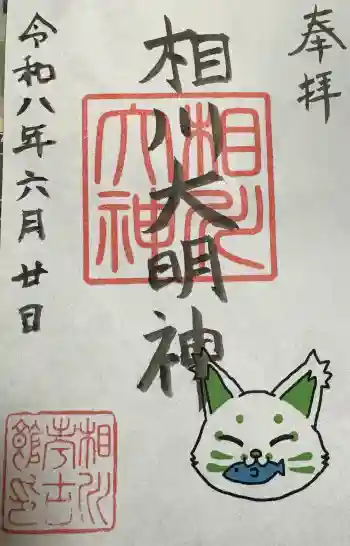 奉拝
相川大明神
相川
大神
令和八年六月廿日
相川
考古
館印